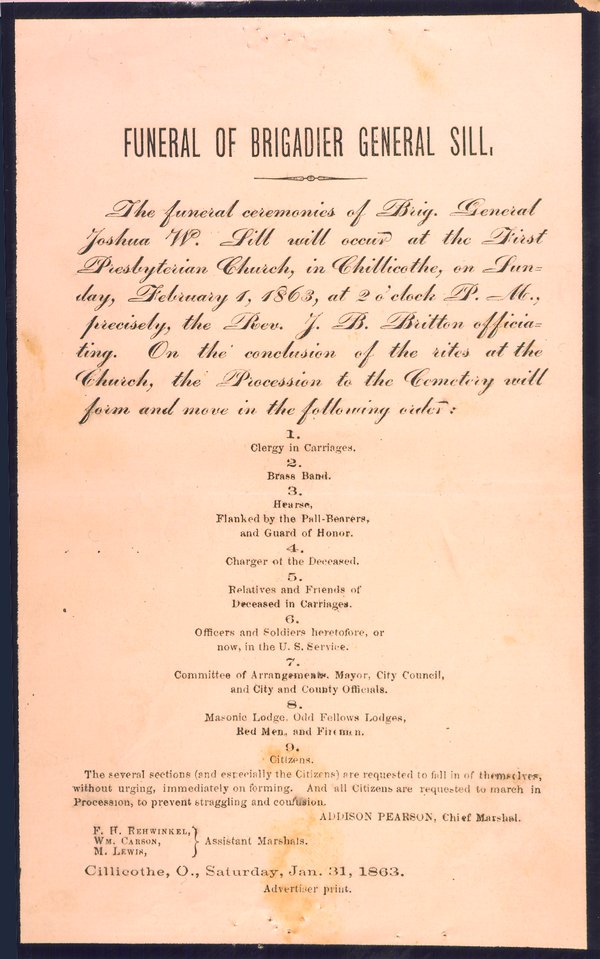 FUNERAL OF BRIGADIER GENERAL SILL.
The funeral ceremonies of Brig. General
Joshua W. Sill will occur at the First
Presbyterian Church, in Chillicothe, on Sun-
day, February 1, 1863, at 2 o'clock P. M.,
precisely, the Rev. J. B. Britton officia-
ting. On the conclusion of the rites at the
Church, the Procession to the Cemetery will
form and move in the following order:
1.
Clergy in Carriages.
2.
Brass Band.
3.
Hearse,
Flanked by the Pall-Bearers,
and Guard of Honor.
4.
Charger of the Deceased.
5.
Relatives and Friends of
Deceased in Carriages.
6.
Officers and Soldiers heretofore, or
now, in the U. S. Service.
7.
Committee of Arrangements, Mayor, City Council,
and City and County Officials.
8.
Masonic Lodge, Odd Fellows Lodges,
Red Men, and Fireman.
9.
Citizens.
The several sections (and especially the Citizens) are requested to fall in of themselves,
without urging, immediately on forming. And all Citizens are requested to march in
Procession, to prevent straggling and confusion.
ADDISON PEARSON, Chief Marshal.
F. H. REHWINKEL,
WM. CARSON, } Assistant Marshals.
M. LEWIS,
Cillicothe, O., Saturday, Jan. 31, 1863.
Advertiser print.